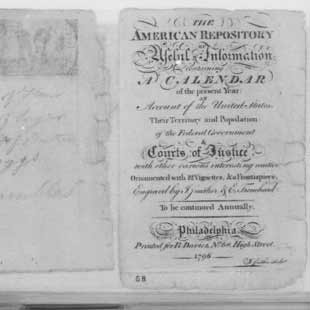 THE
AMERICAN REPOSITORY
of
Useful Information
Containing
A CALENDAR
of the present Year:
an
Account of the United States.
Their Territory and Population
of the Federal Government
&
Courts of Justice
with other various interesting matter
Ornamented with 12 Vignettes, & a Frontispiece,
Engraved by J. Smither & E. Trenchard
To be continued Annually.
Philadelphia
Printed for B. Davies, No. 68. High Street.
1796
G8